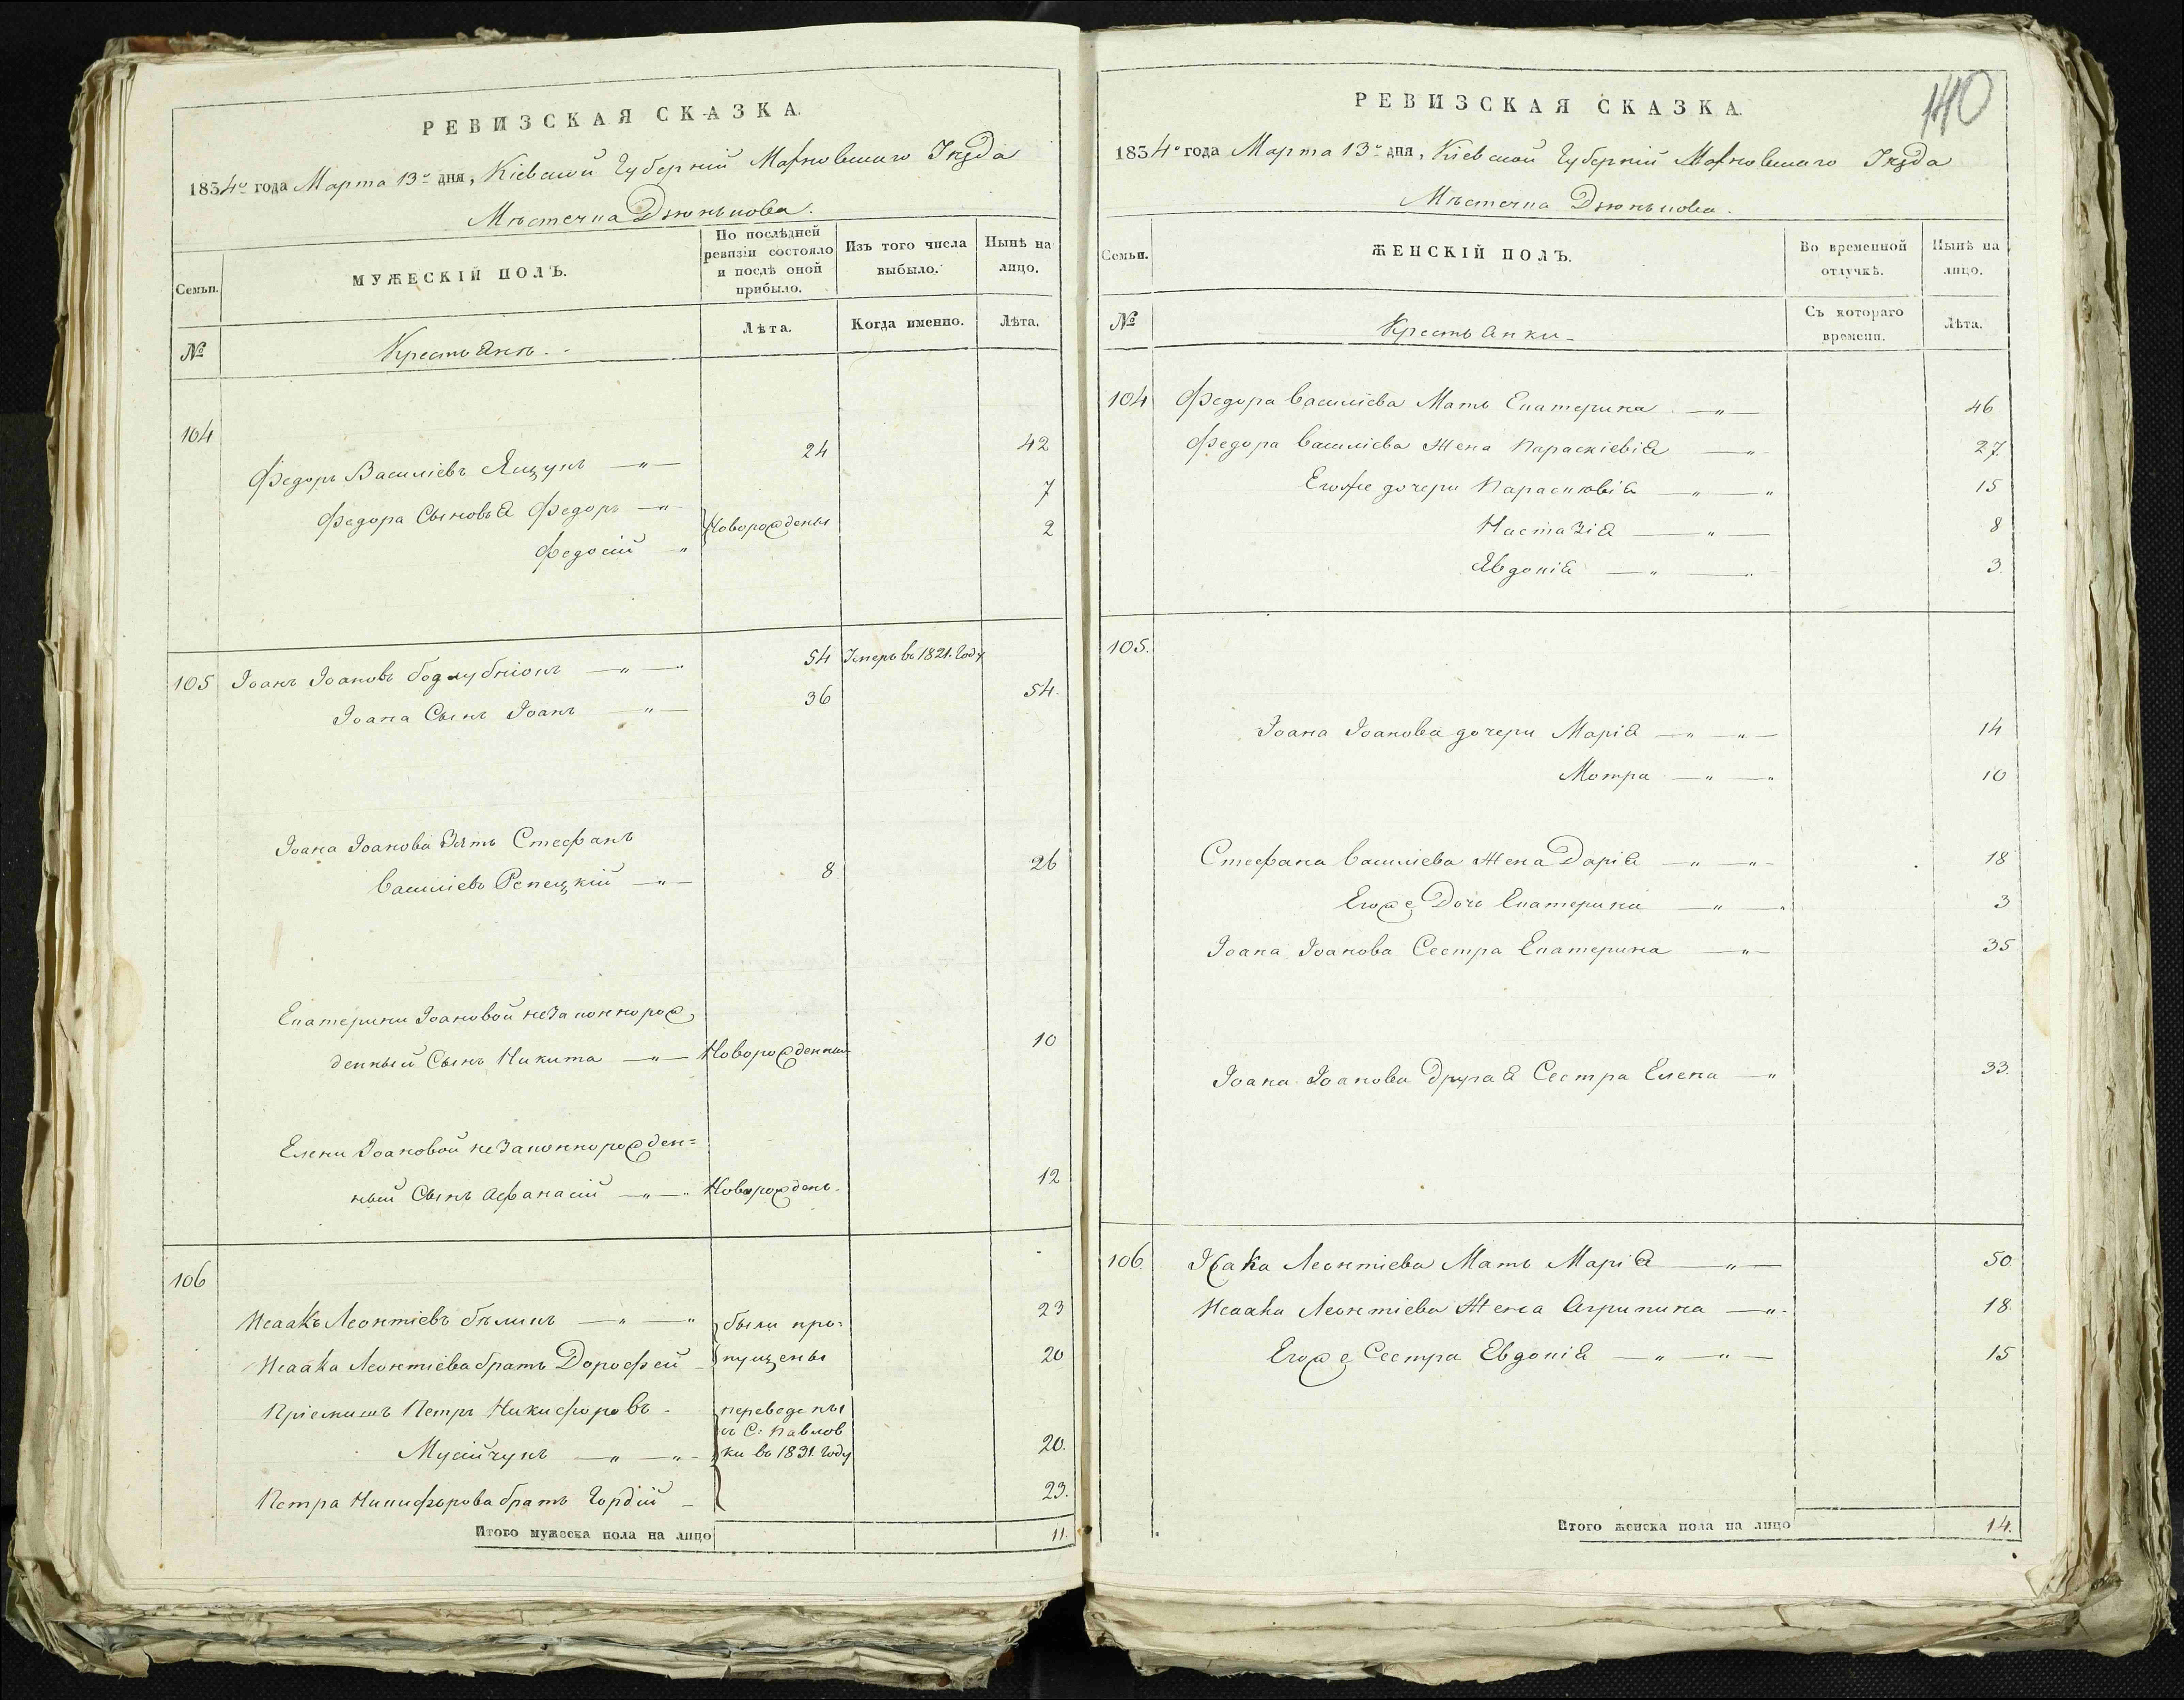 РЕВИЗСКАЯ СКАЗКА.
1834го года Марта 13го дня, Кіевской Губерніи Махновскаго Уѣзда
Мѣстечка Дзюнькова.
Семьи.
МУЖЕСКІЙ ПОЛЪ.
По послѣдней ревизіи состояло и послѣ оной прибыло.
Изъ того числа выбыло.
Нынѣ на лицо.
№
Крестьянъ.
Лѣта.
Когда именно.
Лѣта.
104
Федоръ Василіевъ Ящукъ 24 42
Федора Сыновья Федоръ 7
Новорождены
Федосій 2
105 Іоанъ Іоановъ 54 Умеръ въ 1821. Году
Іоана Сынъ Іоанъ 36 54.
Іоана Іоанова Зять Стефанъ
Василіевъ Репецкій 8 26
Екатерины Іоановой незаконнорож
денный Сынъ Никита Новорожденный 10
Елены Іоановой незаконнорожден=
ный Сынъ Афанасій Новорожденъ 12
106
Исаакъ Леонтіевъ бѣлыкъ были про= 23
Исаака Леонтіева братъ Дорофей пущены 20
Пріемышъ Петръ Никифоровъ переведены
съ С: Павлов
Мусійчукъ ки въ 1831. Году 20.
Петра Никифорова братъ Гордій 23.
Итого мужеска пола на лицо 11.
140
РЕВИЗСКАЯ СКАЗКА.
1834го года Марта 13го дня, Кіевской Губерніи Махновскаго Уѣзда
Мѣстечка Дзюнькова.
Семьи.
ЖЕНСКІЙ ПОЛЪ.
Во временной отлучкѣ.
Нынѣ на лицо.
№
Крестьянки
Съ котораго времени.
Лѣта.
104 Федора Василіева Мать Екатерина 46
Федора Василіева Жена Параскіевія 27
Егоже дочери Параскювія 15
Настазія 8
Явдокія 3
105.
Іоана Іоанова дочери Марія 14
Мотра 10
Стефана Василіева Жена Дарія 18
Егоже Дочь Екатерина 3
Іоана Іоанова Сестра Екатерина 35
Іоана Іоанова Другая Сестра Елена 33.
106. Ісака Леонтіева Мать Марія 50
Исаака Леонтіева Жена Агрипина 18.
Егоже Сестра Евдокія 15
Итого женска пола на лицо 14.